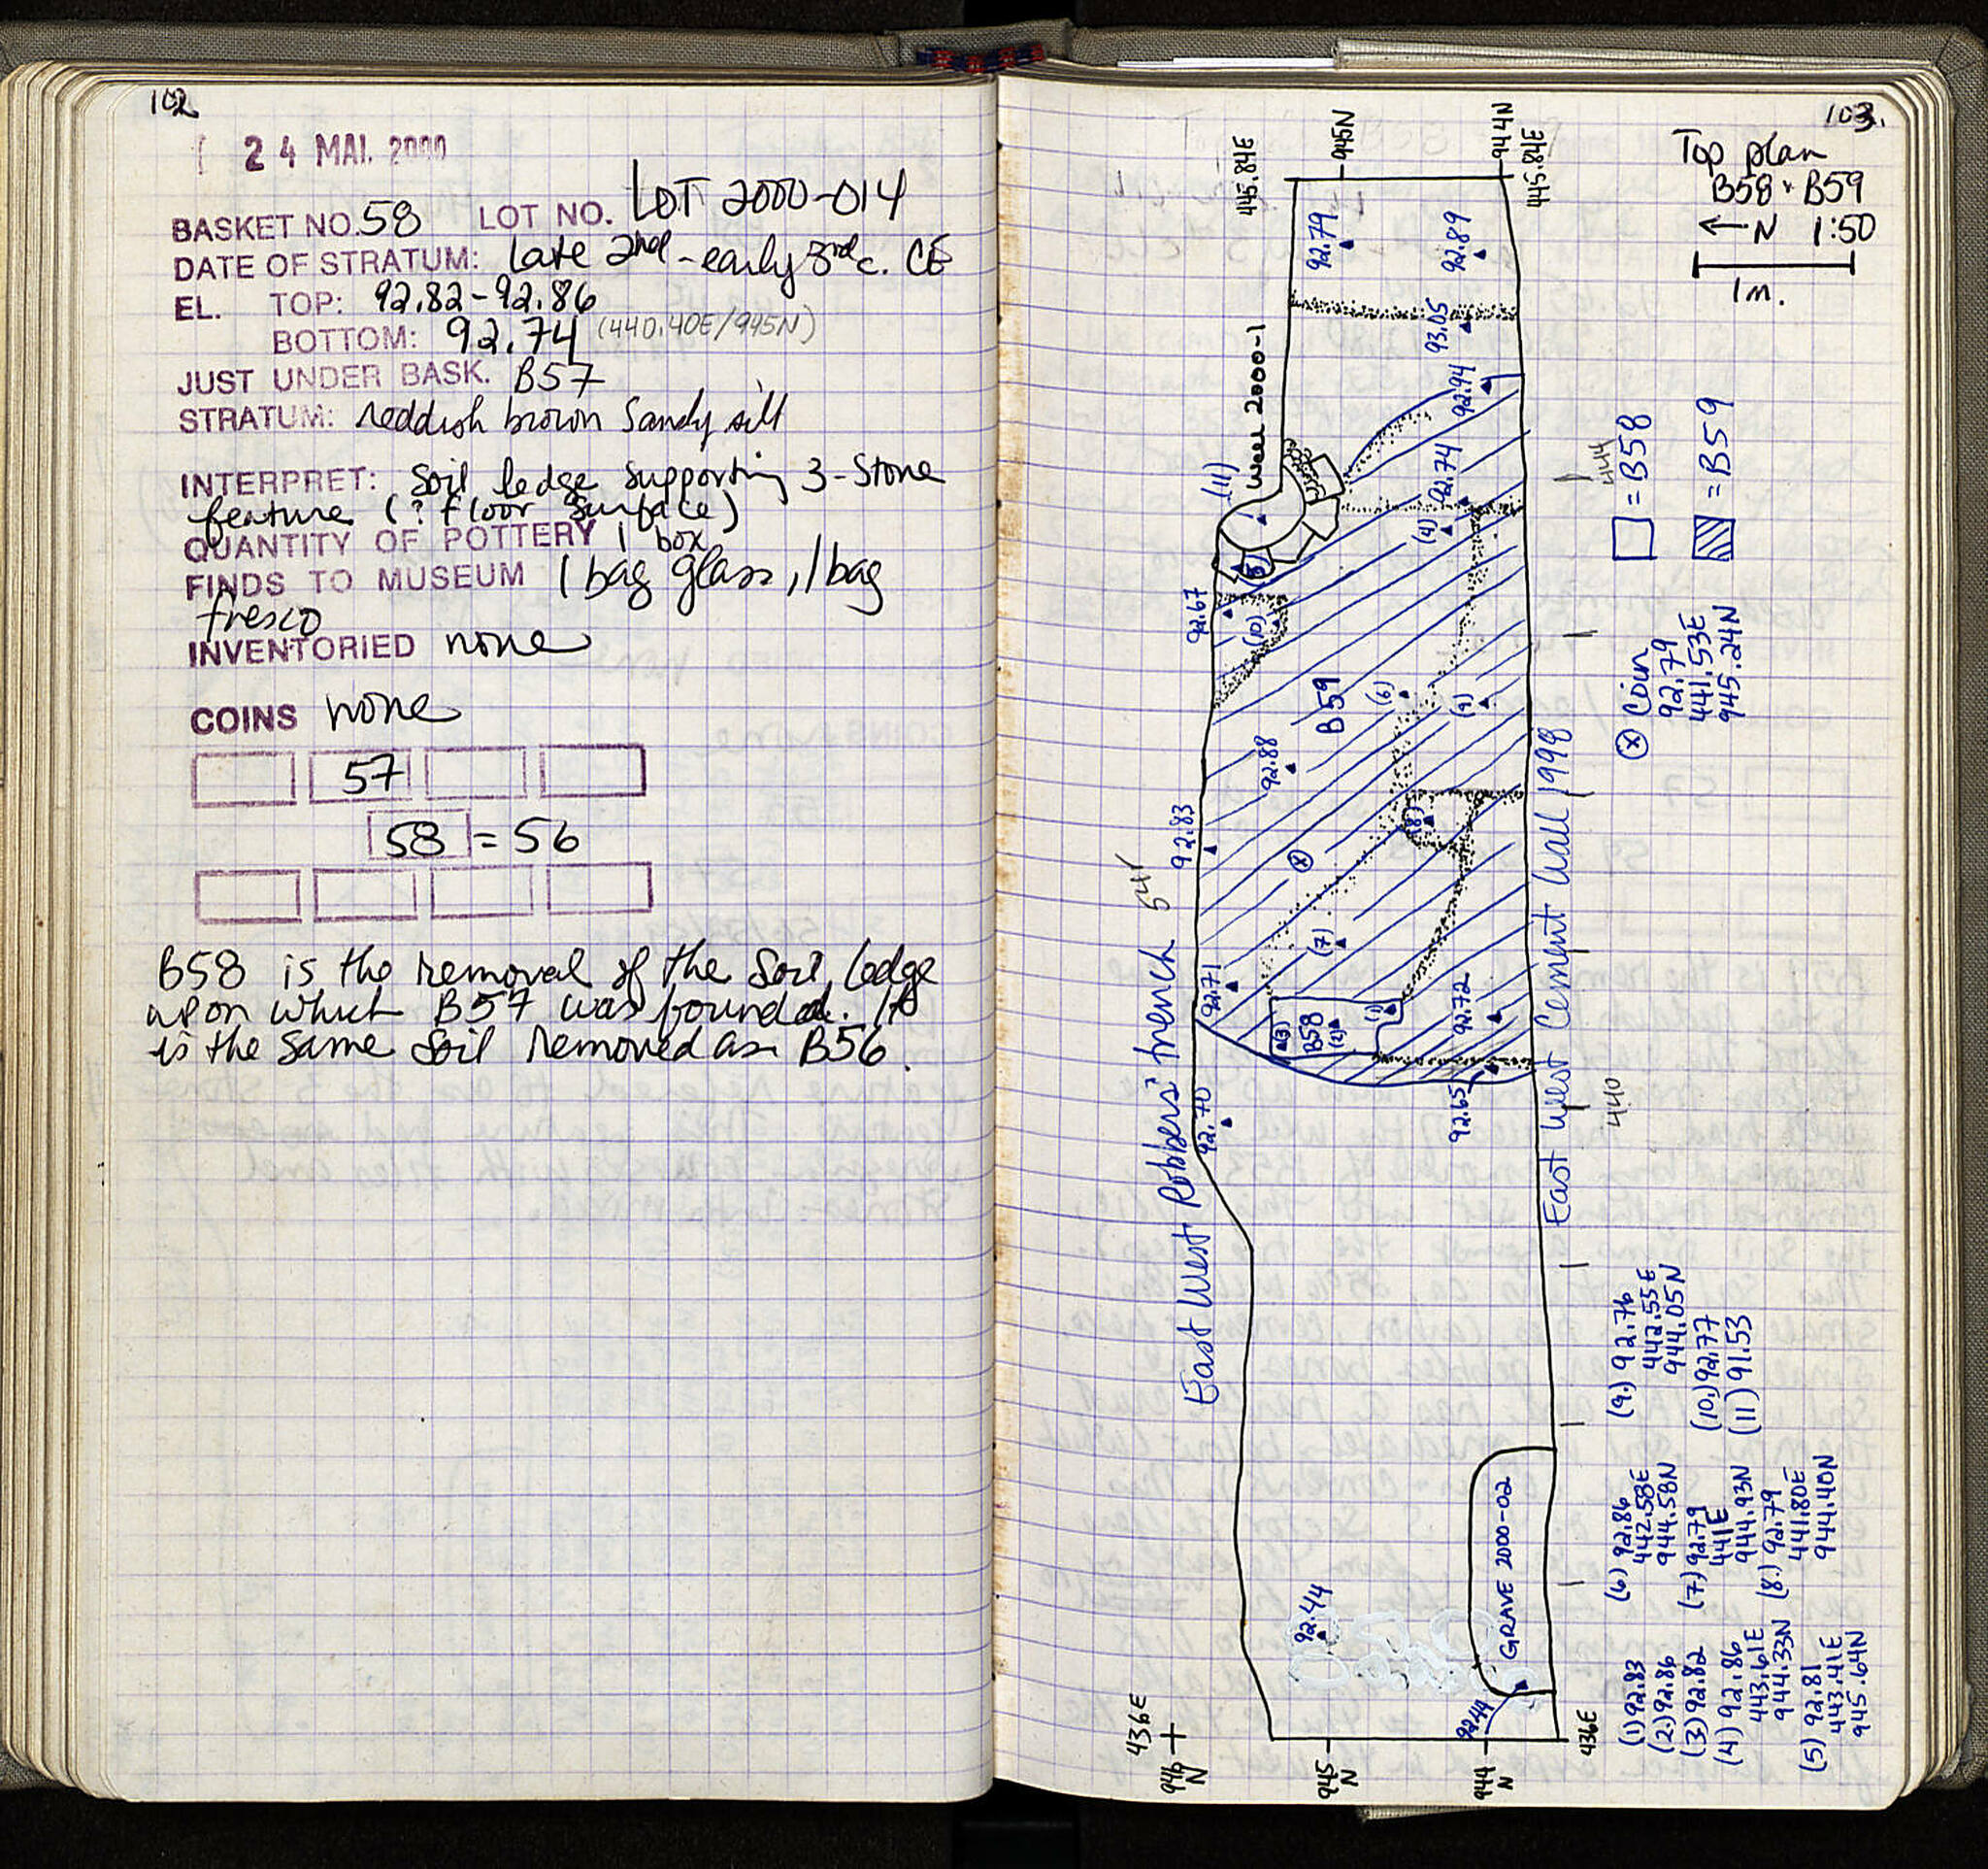 102
24 MAI. 2000
BASKET NO. 58 LOT NO. LOT 2000-014
DATE OF STRATUM: Late 2nd - early 3rd c. CE
EL. TOP: 92.82-92.86
BOTTOM: 92.74 (440.40E/945N)
JUST UNDER BASK. B57
STRATUM: reddish brown sandy silt
INTERPRET: Soil ledge supporting 3-stone
feature (? floor surface)
QUANTITY OF POTTERY 1 box
FINDS TO MUSEUM 1 bag glass, 1 bag
fresco
INVENTORIED none
COINS none
57
58 = 56
B58 is the removal of the soil ledge
upon which B57 was founded. It
is the same soil removed as B56.
103.
Top plan
B58 + B59
← N 1:50
1m.
445.84E
945N
944N
445.84E
92.79
92.89
93.05
92.94
92.74
Well 2000-1
(11)
(4)
(5)
92.67
(10)
B59
(6)
(9)
92.88
92.83
(8)
(x)
(7)
92.71
B58
(3)
(2)
(1)
92.72
92.65
92.70
East West Robbers' Trench
East West Cement Wall 1998
444
440
= B58
= B59
(x) Coin
92.79
441.53E
945.24N
92.44
GRAVE 2000-02
92.44
436E
946
N
945
N
944
N
436E
(1) 92.83
(2) 92.86
(3) 92.82
(4) 92.86
443.61E
944.33N
(5) 92.81
443.41E
945.64N
(6) 92.86
442.58E
944.58N
(7) 92.79
441E
944.93N
(8.) 92.79
441.80E
944.40N
(9.) 92.76
442.55E
944.05N
(10.) 92.77
(11) 91.53